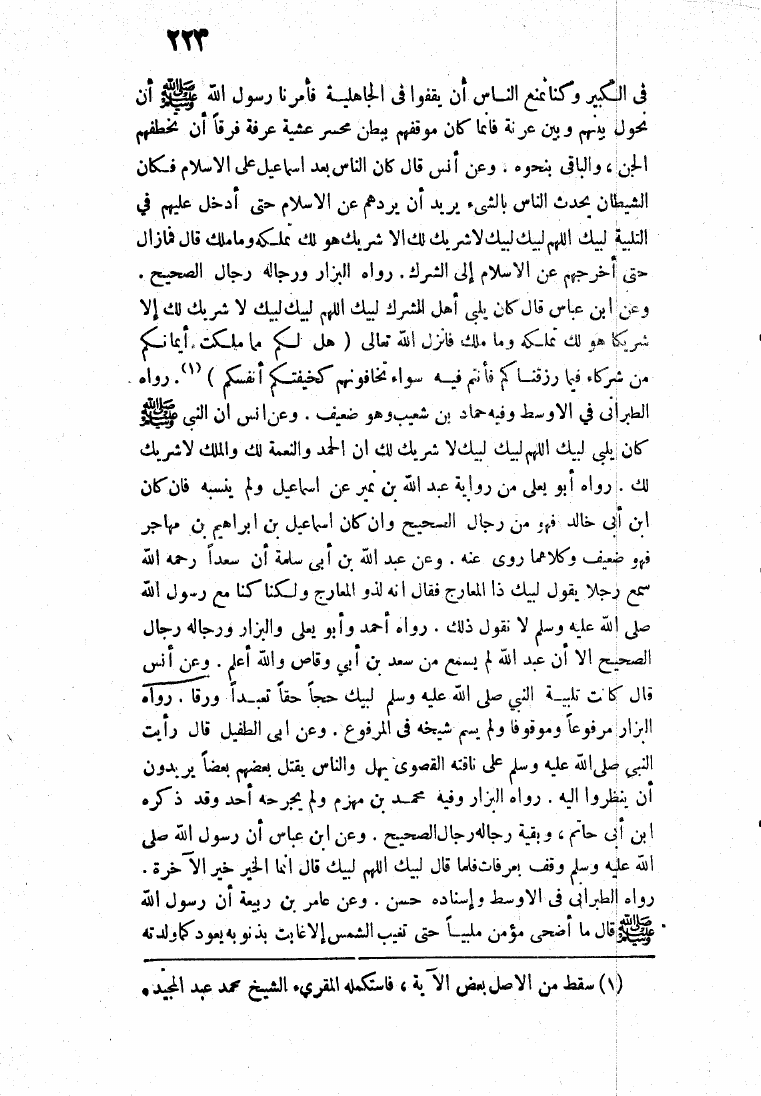 ٢٢٣
فى الكبير وكنا نمنع الناس أن يقفوا فى الجاهلية فأمرنا رسول الله ﷺ أن
نحول بينهم وبين عرنة فانما كان موقفهم ببطن محسر عشية عرفة فرقاً أن تخطفهم
الجن ، والباقى بنحوه . وعن أنس قال كان الناس بعد اسماعيل على الاسلام فكان
الشيطان يحدث الناس بالشىء يريد أن يردهم عن الاسلام حتى أدخل عليهم في
التلبية لبيك اللهم لبيك لبيك لا شريك لك الا شريك هو لك تملكه وما ملك قال فما زال
حتى أخرجهم عن الاسلام إلى الشرك . رواه البزار ورجاله رجال الصحيح .
وعن ابن عباس قال كان يلبى أهل الشرك لبيك اللهم لبيك لبيك لا شريك لك إلا
شريكا هو لك تملكه وما ملك فانزل الله تعالى ( هل لكم مما ملكت أيمانكم
من شركاء فيما رزقناكم فأنتم فيه سواء تخافونهم كخيفتكم أنفسكم ) (١) . رواه
الطبرانى في الاوسط وفيه حماد بن شعيب وهو ضعيف . وعن انس ان النبي ﷺ
كان يلبى لبيك اللهم لبيك لبيك لا شريك لك ان الحمد والنعمة لك والملك لا شريك
لك . رواه أبو يعلى من رواية عبد الله بن نمير عن اسماعيل ولم ينسبه فان كان
ابن أبى خالد فهو من رجال الصحيح وان كان اسماعيل بن ابراهيم بن مهاجر
فهو ضعيف وكلاهما روى عنه . وعن عبد الله بن أبى سلمة أن سعداً رحمه الله
سمع رجلا يقول لبيك ذا المعارج فقال انه لذو المعارج ولكنا كنا مع رسول الله
صلى الله عليه وسلم لا نقول ذلك . رواه أحمد وأبو يعلى والبزار ورجاله رجال
الصحيح الا أن عبد الله لم يسمع من سعد بن أبي وقاص والله أعلم . وعن أنس
قال كانت تلبية النبي صلى الله عليه وسلم لبيك حجاً حقاً تعبداً ورقا . رواه
البزار مرفوعاً وموقوفا ولم يسم شيخه فى المرفوع . وعن ابى الطفيل قال رأيت
النبي صلى الله عليه وسلم على ناقته القصوى يهل والناس يقتل بعضهم بعضاً يريدون
أن ينظروا اليه . رواه البزار وفيه محمد بن مهزم ولم يجرحه أحد وقد ذكره
ابن أبى حاتم ، وبقية رجاله رجال الصحيح . وعن ابن عباس أن رسول الله صلى
الله عليه وسلم وقف بعرفات فلما قال لبيك اللهم لبيك قال انما الخير خير الآخرة .
رواه الطبرانى فى الاوسط وإسناده حسن . وعن عامر بن ربيعة أن رسول الله
ﷺ قال ما أضحى مؤمن ملبياً حتى تغيب الشمس إلا غابت بذنوبه يعود كما ولدته
(١) سقط من الاصل بعض الآية ، فاستكمله المقريء الشيخ محمد عبد المجيد .